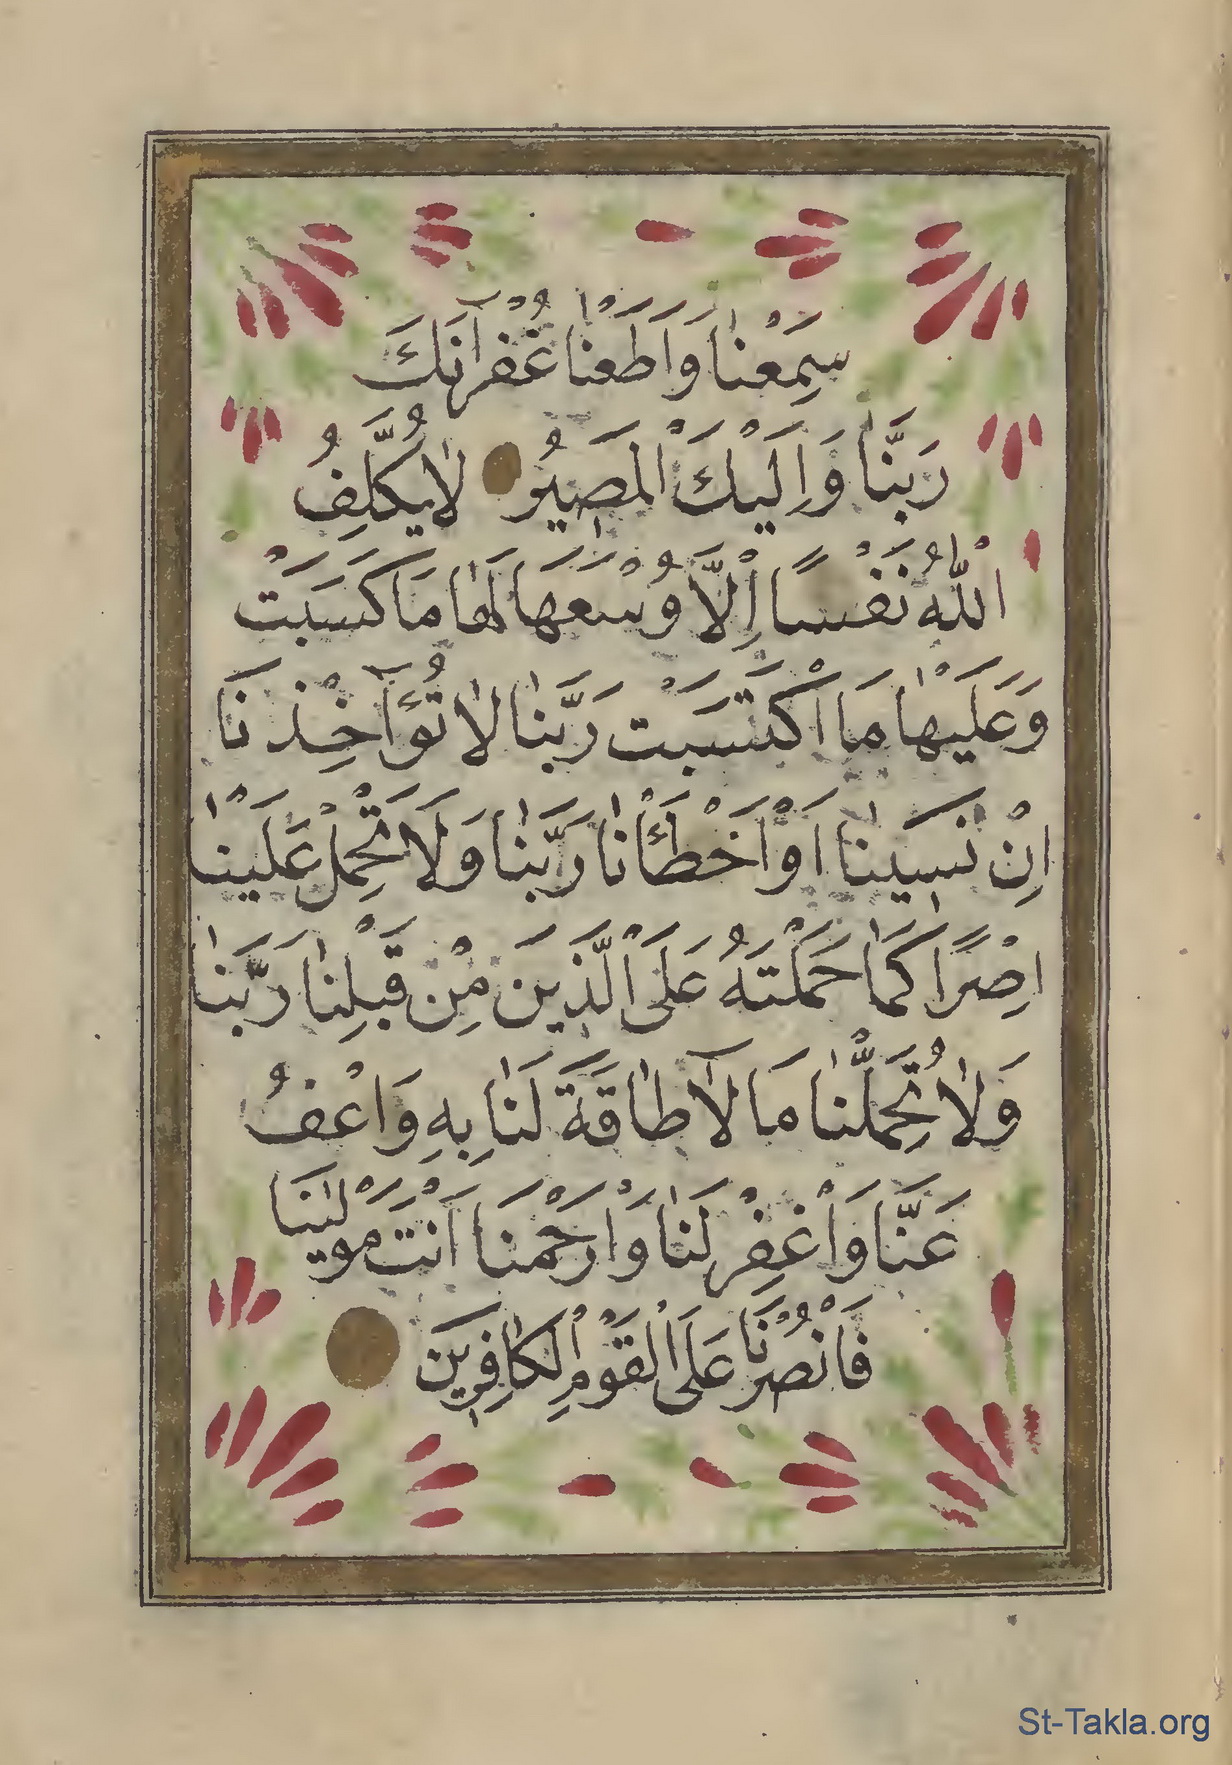 سَمِعْنٰا وَاَطَعْنٰا غُفْرٰانَكَ
رَبَّنٰا وَاِلَيْكَ الْمَصٖيرُ لٰا يُكَلِّفُ
اللّٰهُ نَفْسًا اِلَّا وُسْعَهَا لَهٰا مَا كَسَبَتْ
وَعَلَيْهٰا مَا اكْتَسَبَتْ رَبَّنٰا لٰا تُؤٰاخِذْنَا
اِنْ نَسٖينٰا اَوْ اَخْطَأْنٰا رَبَّنٰا وَلَا تَحْمِلْ عَلَيْنٰا
اِصْرًا كَمٰا حَمَلْتَهُ عَلَى الَّذٖينَ مِنْ قَبْلِنٰا رَبَّنٰا
وَلٰا تُحَمِّلْنٰا مَا لٰا طٰاقَةَ لَنٰا بِهٖ وَاعْفُ
عَنَّا وَاغْفِرْ لَنٰا وَارْحَمْنَا اَنْتَ مَوْلٰينَا
فَانْصُرْنَا عَلَى الْقَوْمِ الْكٰافِرٖينَ
St-Takla.org